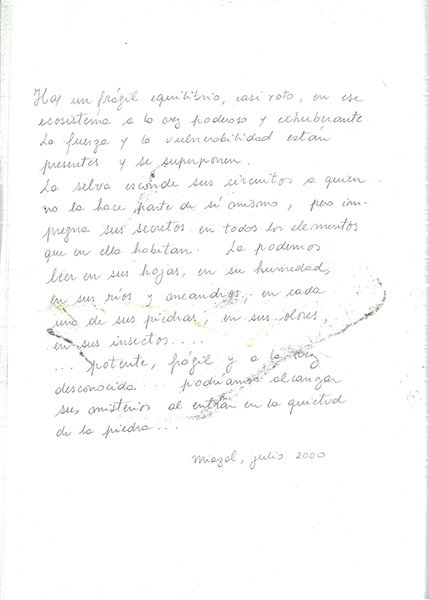 Hay un frágil equilibrio, casi roto, en ese
ecosistema a la vez poderoso y exhuberante.
La fuerza y la vulnerabilidad están
presentes y se superponen.
La selva esconde sus circuitos a quien
no la hace parte de sí mismo, pero im-
pregna sus secretos en todos los elementos
que en ella habitan. La podemos
leer en sus hojas, en su humedad,
en sus ríos y meandros, en cada
una de sus piedras, en sus olores,
en sus insectos....
... potente, frágil y a la vez
desconocida... podríamos alcanzar
sus misterios al entrar en la quietud
de la piedra...
Miazal, julio 2000